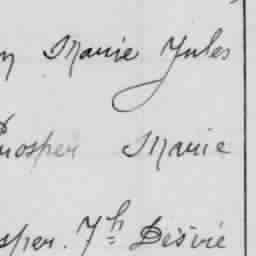 Marie Jules
Prosper Marie
sper. Jh Désiré